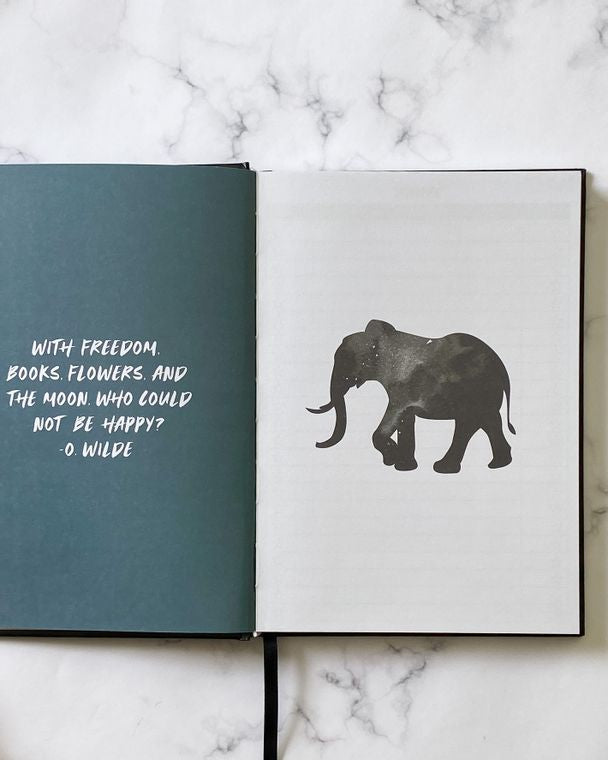 WITH FREEDOM,
BOOKS, FLOWERS, AND
THE MOON, WHO COULD
NOT BE HAPPY?
-O. WILDE